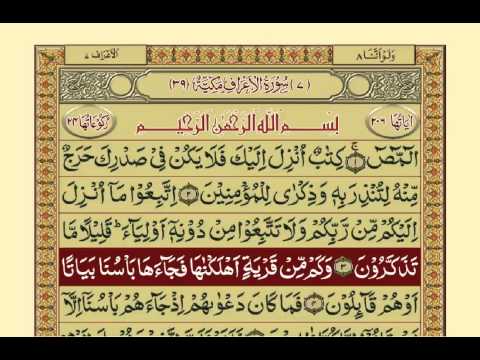 وَلَوْ اَنَّنَا ٨
الْاَعْرَاف ٧
(٧) سُوْرَةُ الْاَعْرَافِ مَكِّيَّةٌ (٣٩)
اٰيَاتُهَا ٢٠٦
بِسْمِ اللّٰهِ الرَّحْمٰنِ الرَّحِيْمِ
رُكُوْعَاتُهَا ٢٤
الٓمّٓصٓ ۚ ١ كِتٰبٌ اُنْزِلَ اِلَيْكَ فَلَا يَكُنْ فِيْ صَدْرِكَ حَرَجٌ
مِّنْهُ لِتُنْذِرَ بِهٖ وَذِكْرٰى لِلْمُؤْمِنِيْنَ ٢ اِتَّبِعُوْا مَاۤ اُنْزِلَ
اِلَيْكُمْ مِّنْ رَّبِّكُمْ وَلَا تَتَّبِعُوْا مِنْ دُوْنِهٖۤ اَوْلِيَآءَ ؕ قَلِيْلًا مَّا
تَذَكَّرُوْنَ ٣ وَكَمْ مِّنْ قَرْيَةٍ اَهْلَكْنٰهَا فَجَآءَهَا بَاْسُنَا بَيَاتًا
اَوْ هُمْ قَآئِلُوْنَ ٤ فَمَا كَانَ دَعْوٰىهُمْ اِذْ جَآءَهُمْ بَاْسُنَاۤ اِلَّاۤ